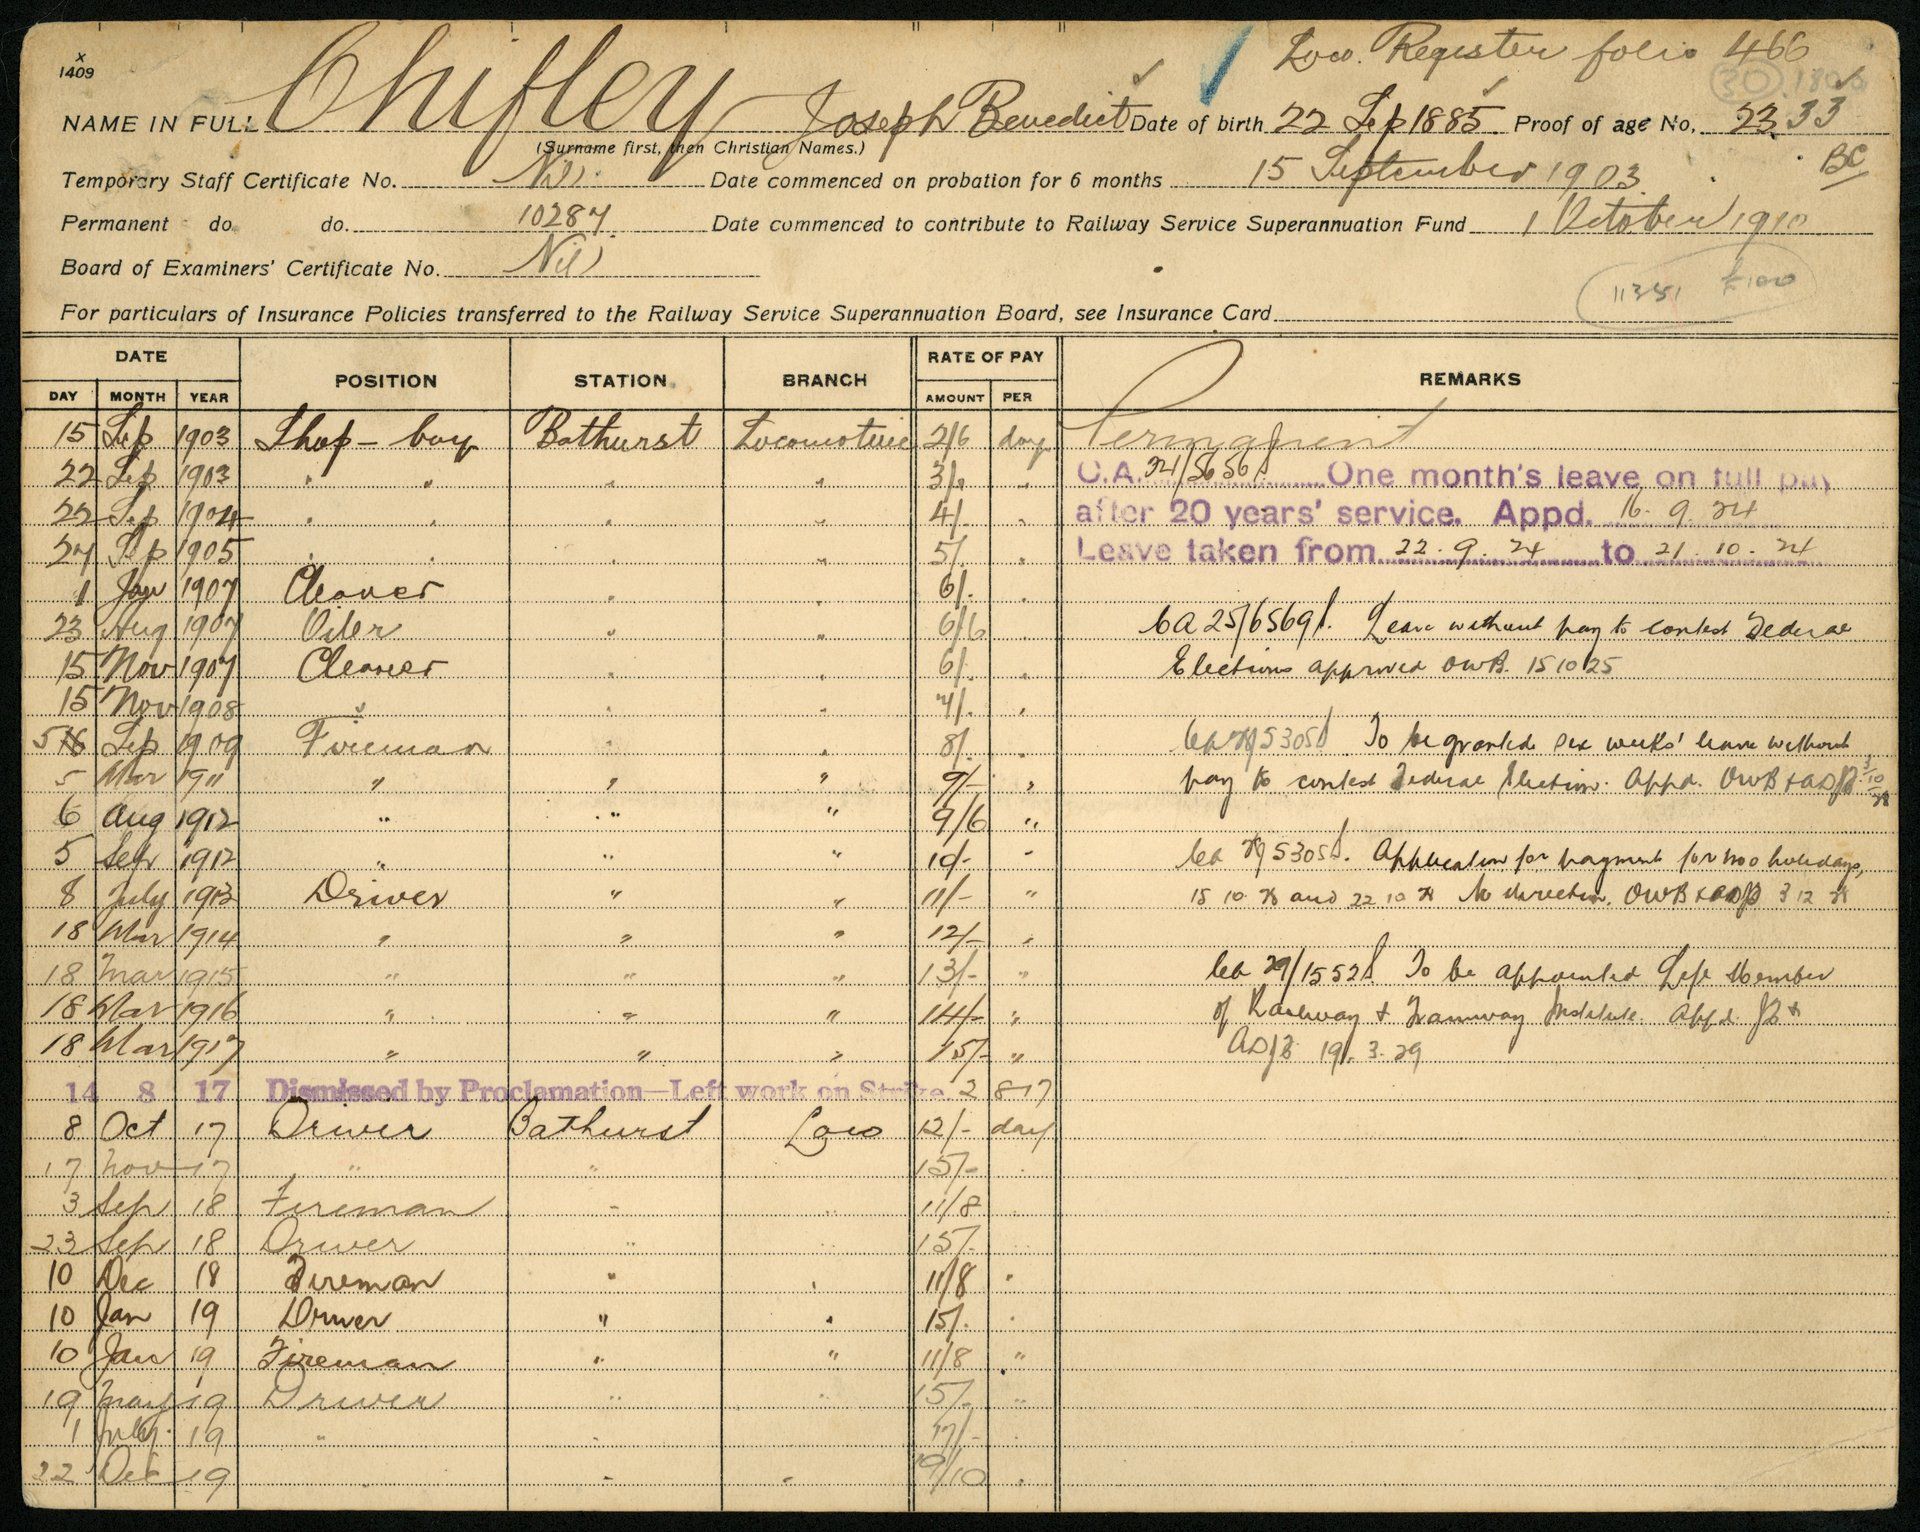 Loco. Register folio 466
X
1409
30 1806
NAME IN FULL Chifley Joseph Benedict Date of birth 22 Sep 1885 Proof of age No. 23 33
(Surname first, then Christian Names.)
BC
Temporary Staff Certificate No. Nil. Date commenced on probation for 6 months 15 September 1903
Permanent do. do. 10287 Date commenced to contribute to Railway Service Superannuation Fund 1 October 1910
Board of Examiners' Certificate No. Nil
11351 £100
For particulars of Insurance Policies transferred to the Railway Service Superannuation Board, see Insurance Card
DATE POSITION STATION BRANCH RATE OF PAY REMARKS
DAY MONTH YEAR AMOUNT PER
15 Sep 1903 Shop-boy Bathurst Locomotive 2/6 day Permanent
22 Sep 1903 " " " " 3/. " C.A. 24/5656 One month's leave on full pay
22 Sep 1904 " " " " 4/. " after 20 years' service. Appd. 16. 9. 24
27 Sep 1905 " " " " 5/. " Leave taken from 22. 9. 24 to 21. 10. 24
1 Jan 1907 Cleaner " " 6/. "
23 Aug 1907 Oiler " " 6/6 " CA 25/6569. Leave without pay to contest Federal
15 Nov 1907 Cleaner " " 6/. " Elections approved OWB. 15 10 25
15 Nov 1908 " " " 7/. "
5 Sep 1909 Fireman " " 8/. " CA 28/5305. To be granted six weeks' leave without
5 Mar 1911 " " " 9/- " pay to contest Federal Election. Appd. OWB + ADJB 3/10/28
6 Aug 1912 " " " 9/6 "
5 Sep 1912 " " " 10/- " CA 28/5305. Application for payment for two holidays,
8 July 1913 Driver " " 11/- " 15 10 28 and 22 10 28 No direction. OWB + ADJB 3 12 28
18 Mar 1914 " " " 12/- "
18 Mar 1915 " " " 13/- " CA 29/1552. To be appointed Life Member
18 Mar 1916 " " " 14/- " of Railway & Tramway Institute. Appd. JB +
18 Mar 1917 " " " 15/- " ADJB 19. 3. 29
14 8 17 Dismissed by Proclamation—Left work on Strike. 2 8 17
8 Oct 17 Driver Bathurst Loco 12/- day
17 Nov 17 " " 15/- "
3 Sep 18 Fireman " " 11/8 "
23 Sep 18 Driver " 15/.
10 Dec 18 Fireman " " 11/8 "
10 Jan 19 Driver " " 15/. "
10 Jan 19 Fireman " " 11/8 "
19 May 19 Driver " " 15/. "
1 July 19 " " 17/- "
22 Dec 19 " " 19/10 "